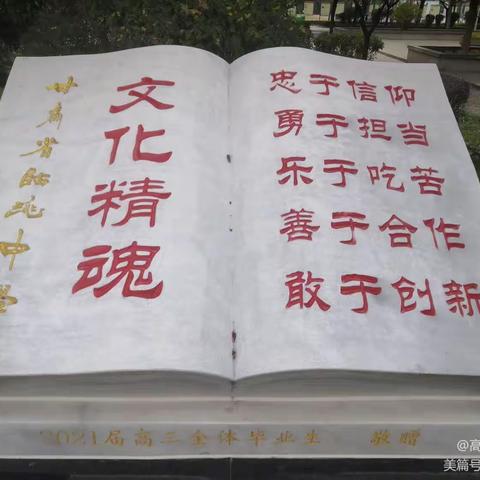 甘肃省临洮中学
文化精魂
忠于信仰
勇于担当
乐于吃苦
善于合作
敢于创新
2021届高三全体毕业生 敬赠
@高
美篇号